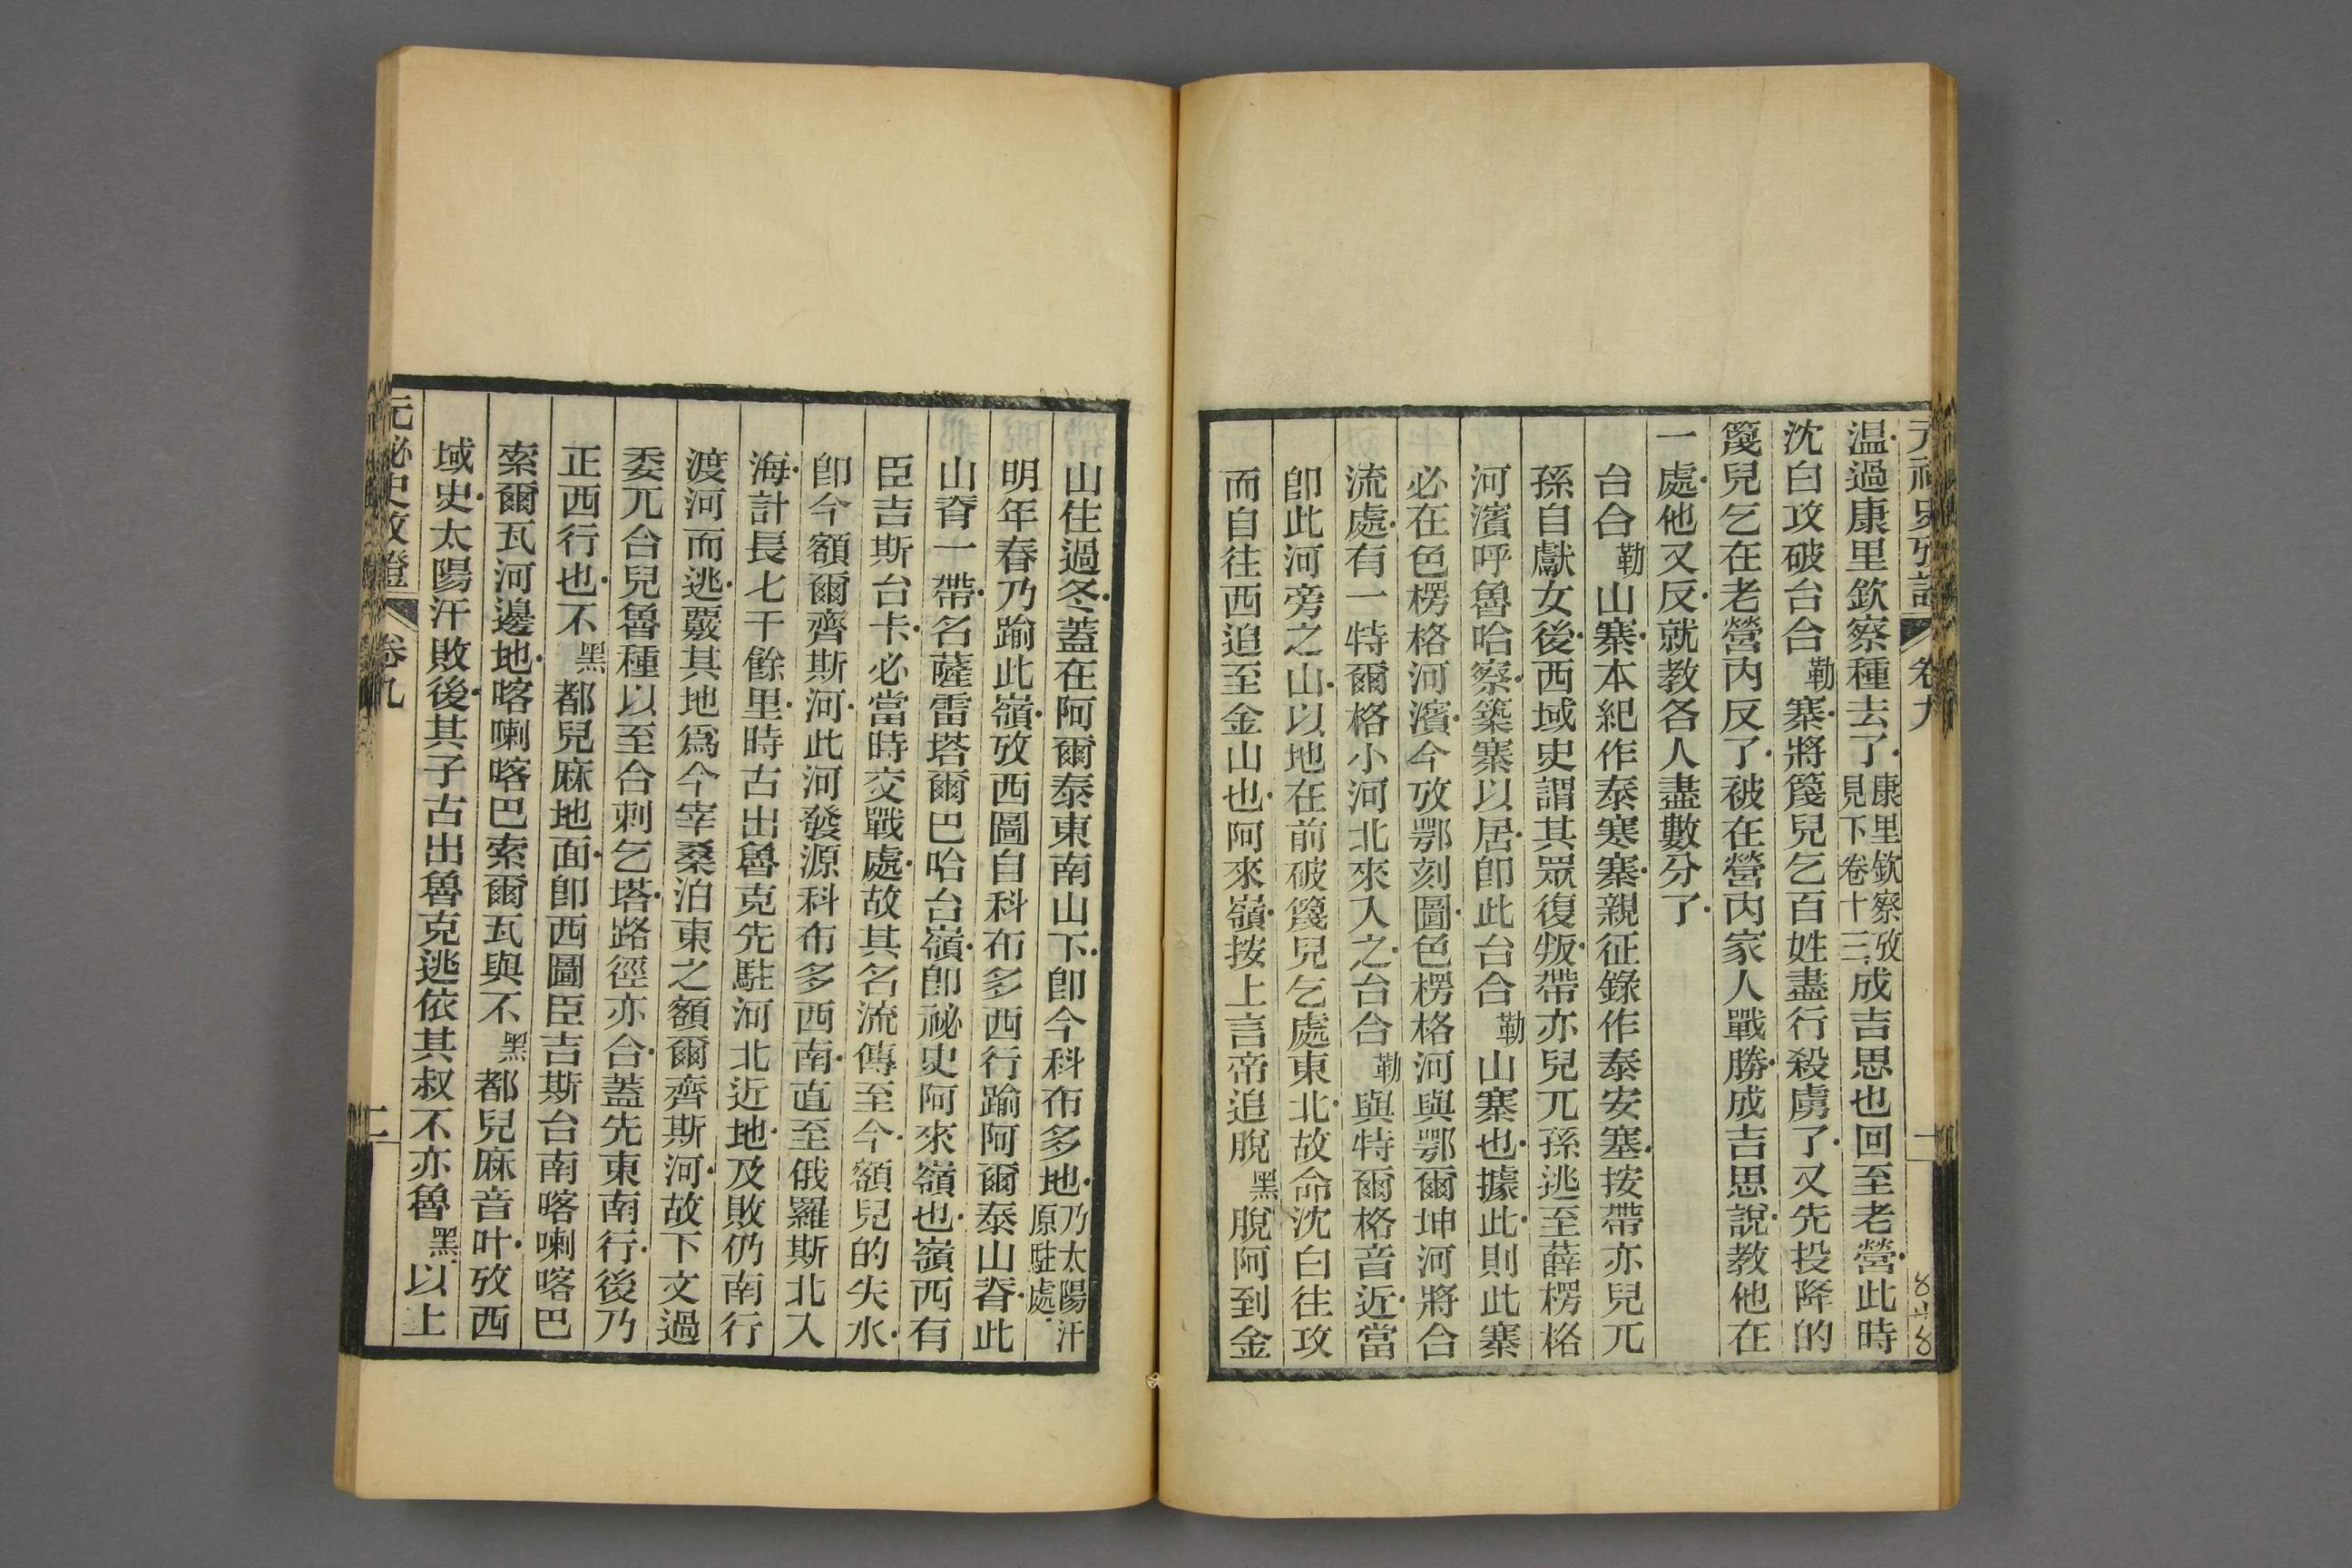 元祕史攷證 卷九 一
温過康里欽察種去了康里欽察攷見下卷十三成吉思也回至老營此時
沈白攻破台合勒寨將篾兒乞百姓盡行殺虜了又先投降的
篾兒乞在老營內反了被在營內家人戰勝成吉思說教他在
一處他又反就教各人盡數分了
台合勒山寨本紀作泰寒寨親征錄作泰安塞按帶亦兒兀
孫自獻女後西域史謂其眾復叛帶亦兒兀孫逃至薛楞格
河濱呼魯哈察築寨以居卽此台合勒山寨也據此則此寨
必在色楞格河濱今攷鄂刻圖色楞格河與鄂爾坤河將合
流處有一特爾格小河北來入之台合勒與特爾格音近當
卽此河旁之山以地在前破篾兒乞處東北故命沈白往攻
而自往西追至金山也阿來嶺按上言帝追脫黑脫阿到金
山住過冬蓋在阿爾泰東南山下卽今科布多地乃太陽汗原駐處
明年春乃踰此嶺攷西圖自科布多西行踰阿爾泰山脊此
山脊一帶名薩雷塔爾巴哈台嶺卽祕史阿來嶺也嶺西有
臣吉斯台卡必當時交戰處故其名流傳至今額兒的失水
卽今額爾齊斯河此河發源科布多西南直至俄羅斯北入
海計長七千餘里時古出魯克先駐河北近地及敗仍南行
渡河而逃覈其地爲今宰桑泊東之額爾齊斯河故下文過
委兀台兒魯種以至合剌乞塔路徑亦合蓋先東南行後乃
正西行也不黑都兒麻地面卽西圖臣吉斯台南喀喇喀巴
索爾瓦河邊地喀喇喀巴索爾瓦與不黑都兒麻音叶攷西
域史太陽汗敗後其子古出魯克逃依其叔不亦魯黑以上
元祕史攷證 卷九 二